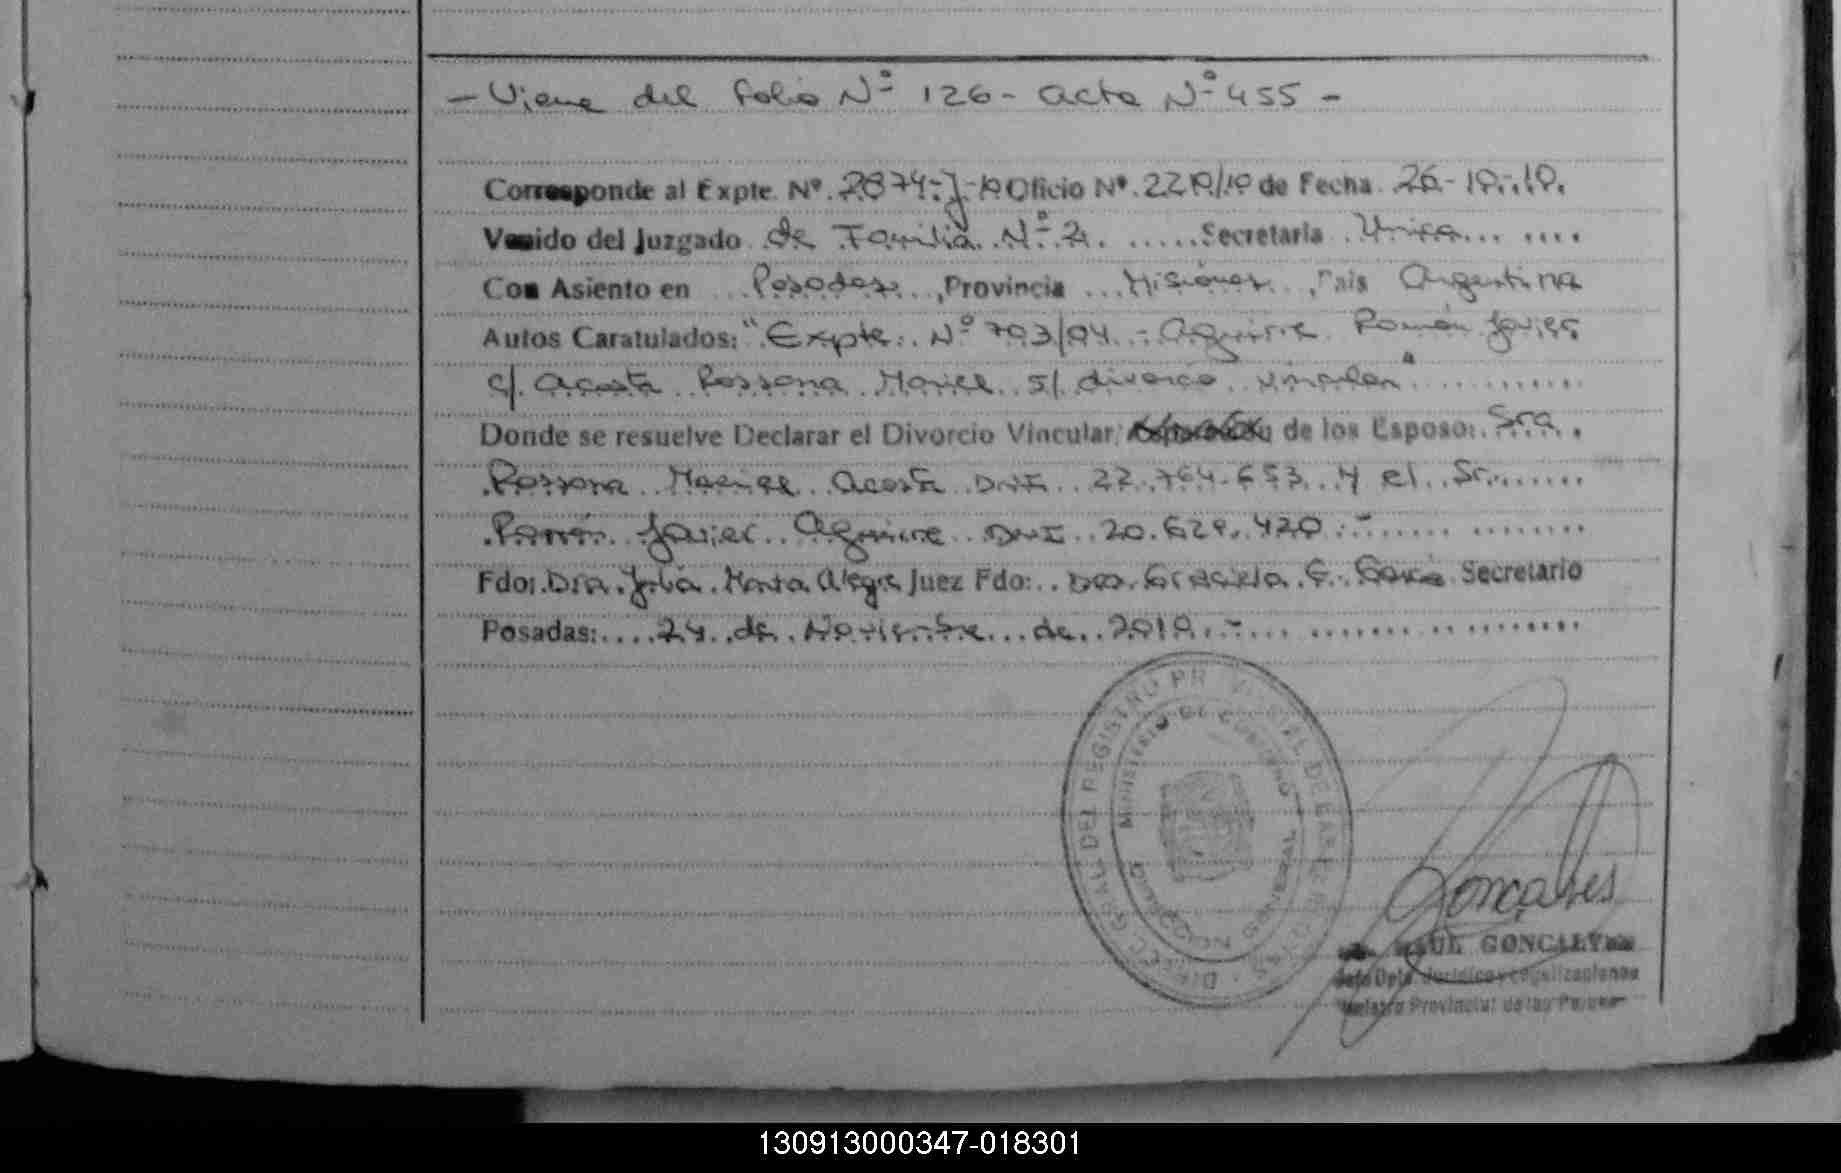 - Viene del folio Nº 126 - acta Nº 455 -
Corresponde al Expte. Nº 2874-J-10 Oficio Nº 2210/10 de Fecha 26-10-10.
Venido del Juzgado de Familia Nº 2 Secretaria Unica
Con Asiento en Posadas, Provincia Misiones, Pais Argentina
Autos Caratulados: "Expte. Nº 703/94 - Aguirre Ramón Javier
c/ Acosta Rossana Mariel s/ divorcio vincular"
Donde se resuelve Declarar el Divorcio Vincular, de los Esposo: Sra.
Rossana Mariel Acosta DNI 22.764.653 y el Sr.
Ramón Javier Aguirre DNI 20.629.420.-
Fdo: Dra. Julia Marta Alegre Juez Fdo: Dra. Graciela Secretario
Posadas: 24 de Noviembre de 2010.-
DIREC. GRAL. DEL REGISTRO PROVINCIAL DE LAS PERSONAS
MINISTERIO DE GOBIERNO
Goncalves
RAUL GONCALVES
Jefe Dpto. Juridico y Legalizaciones
Registro Provincial de las Personas
130913000347-018301